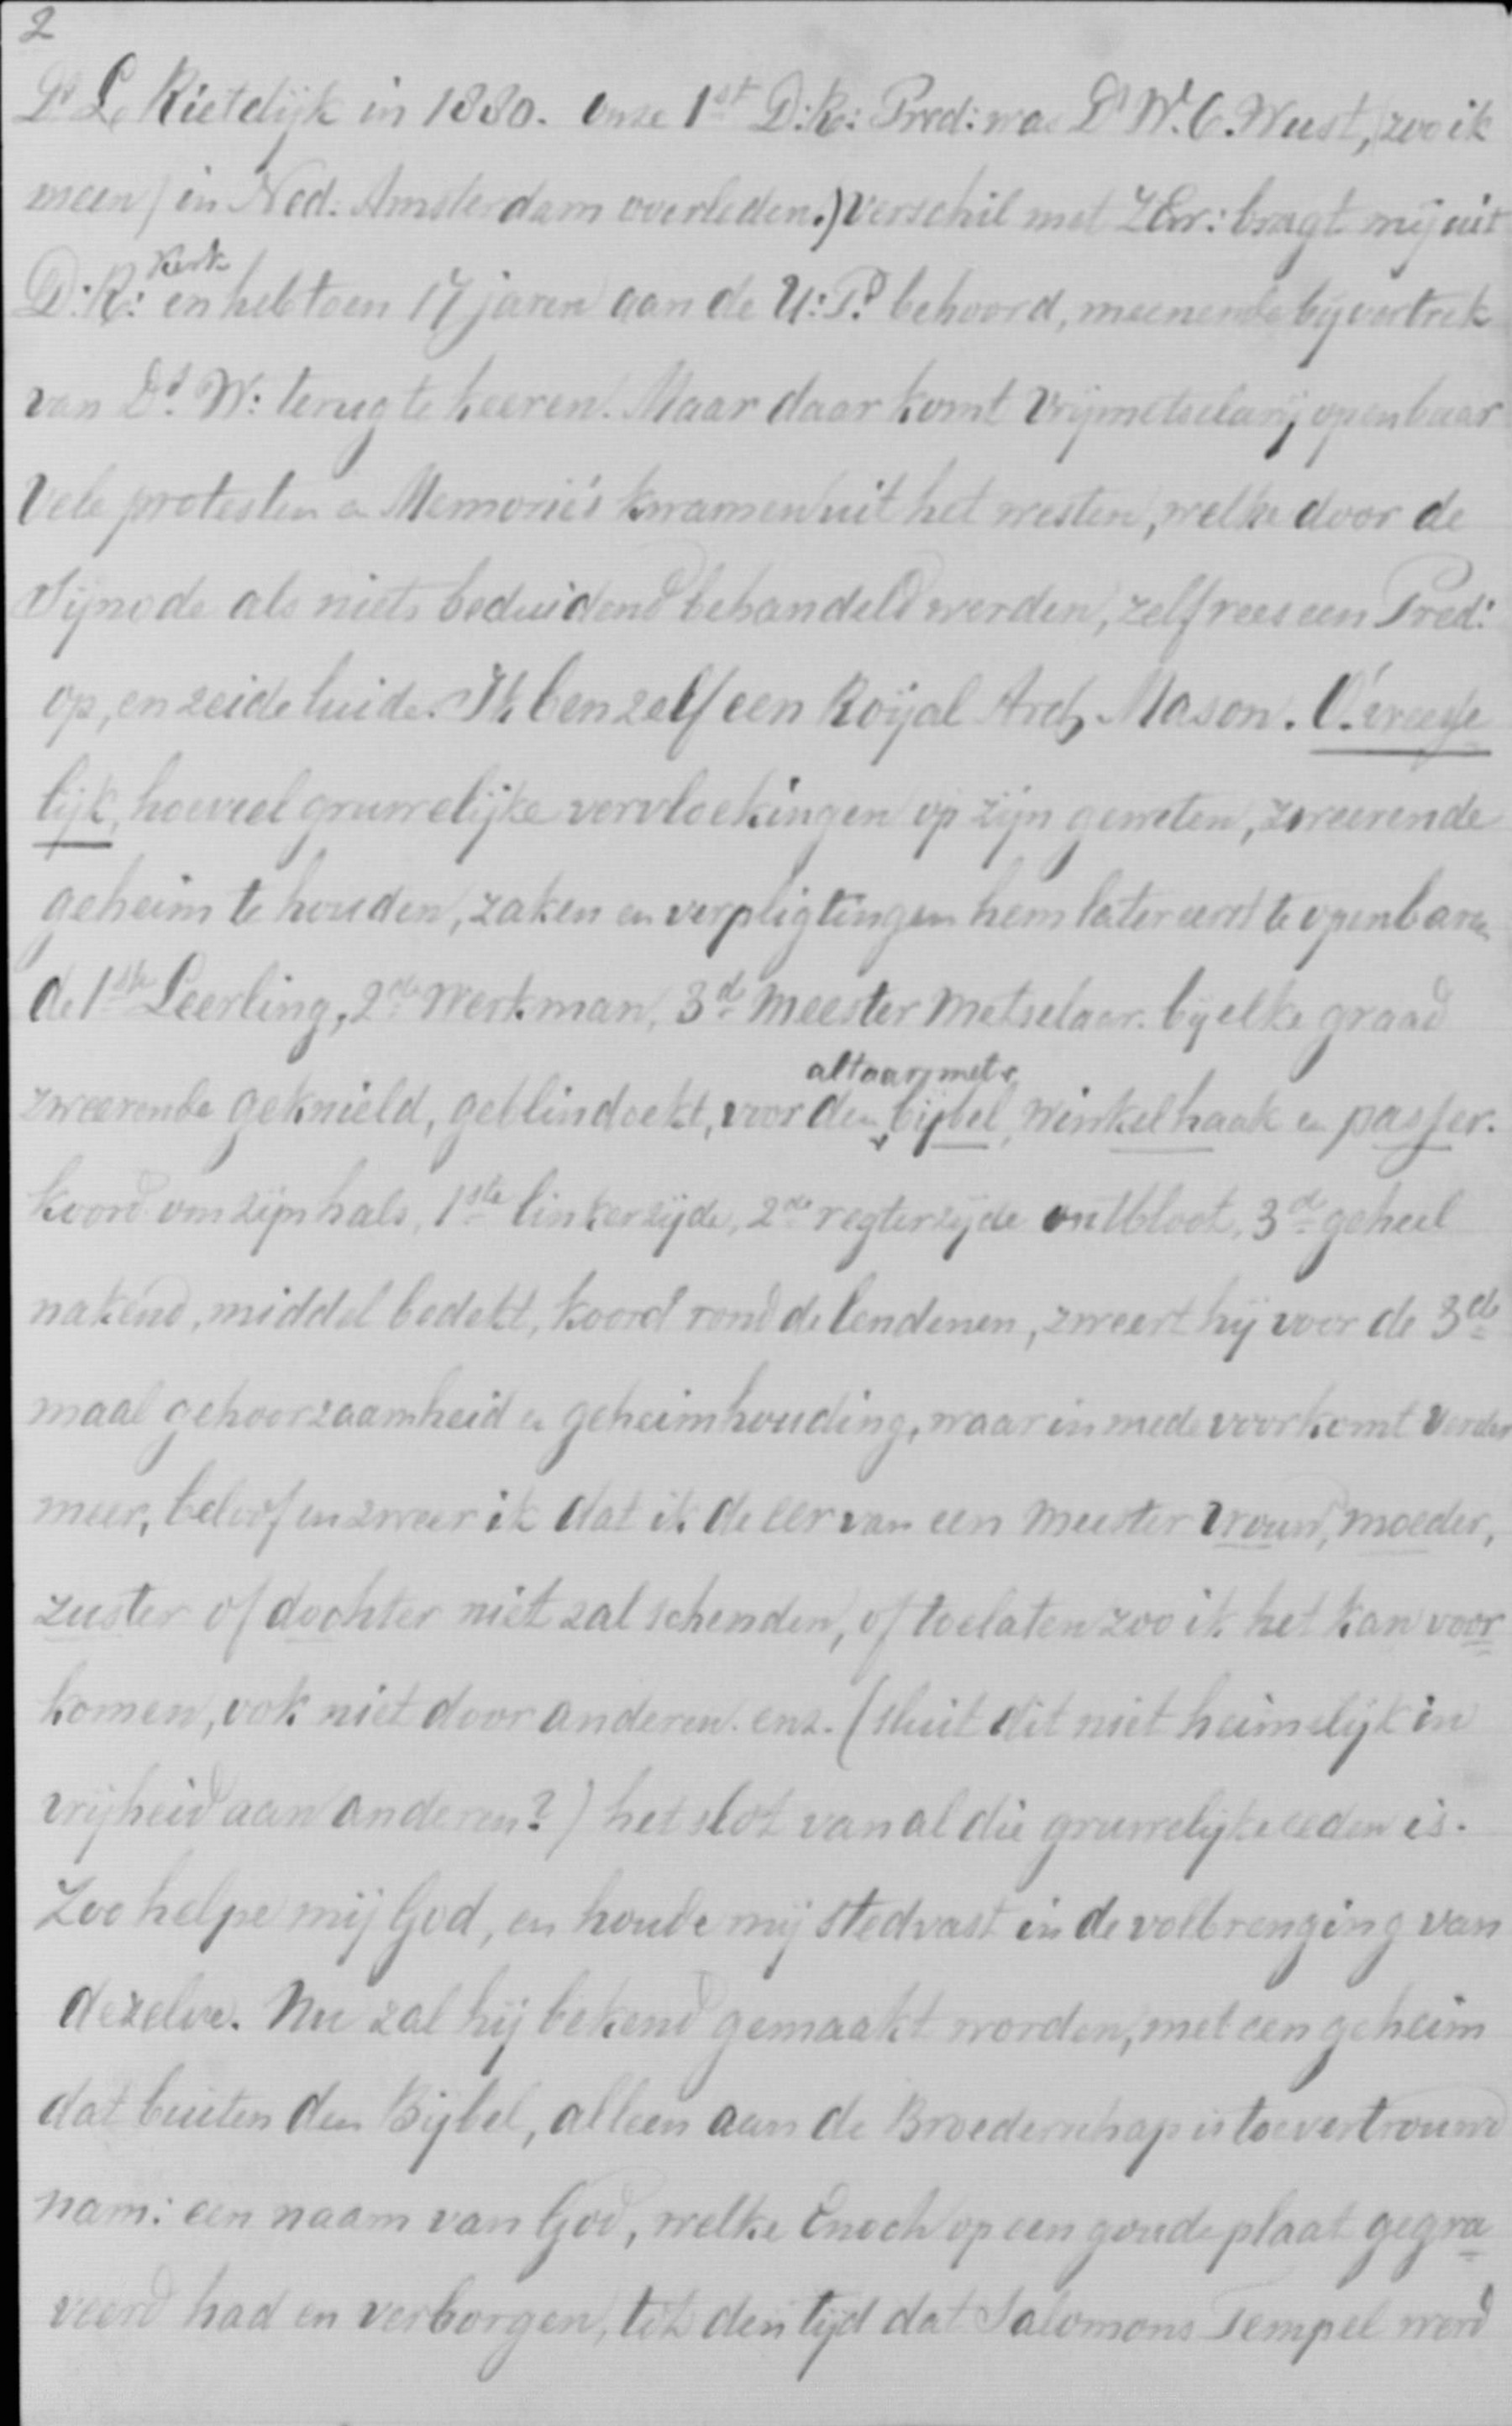 2
Ds L. Rietdijk in 1880. Onze 1st D: R: Pred: was Ds W. C. Wust, zoo ik
meen / in Ned: Amsterdam overleden.) verschil met ZEw: bragt mij uit
Kerk
D: R: en heb toen 17 jaren aan de U: P. behoord, meenende bij vertrek
van Ds. W: terug te keeren. Maar daar komt Vrijmetselarij openbaar
Vele protesten en Memorie's kwamen uit het westen, welke door de
Sijnode als niets beduidend behandeld werden, zelf rees een Pred:
op, en zeide luide. Ik ben zelf een Roijal Arch Mason. O! vreese
lijk, hoeveel gruwelijke vervloekingen op zijn geweten, zweerende
geheim te houden, zaken en verpligtingen hem later eerst te openbaren
de 1ste Leerling, 2de Werkman, 3de Meester Metselaar. bij elke graad
altaar met
zweerende geknield, geblinddoekt, voor den bijbel, winkelhaak en passer.
koord om zijn hals, 1ste linkerzijde, 2de regterzijde ontbloot, 3de geheel
nakend, middel bedekt, koord rond de lendenen, zweert hij voor de 3de
maal gehoorzaamheid en geheimhouding, waarin mede voorkomt Verder
meer, beloof en zweer ik dat ik de eer van een Meester Vrouw, moeder,
zuster of dochter niet zal schenden, of toelaten zoo ik het kan voor
komen, ook niet door anderen. enz. (sluit dit niet heimelijk in
vrijheid aan anderen?) het slot van al die gruwelijke eeden is.
Zoo helpe mij God, en houde mij stedvast in de volbrenging van
dezelve. Nu zal hij bekend gemaakt worden, met een geheim
dat buiten den Bijbel, alleen aan de Broederschap is toevertrouwd
nam: een naam van God, welke Enoch op een goude plaat gegra
veerd had en verborgen, tot den tijd dat Salomons Tempel werd